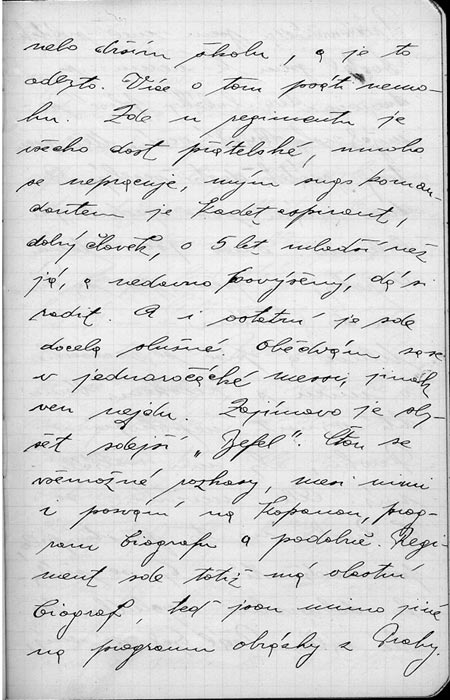 nebo držím školu, a je to
odbyto. Více o tom psáti nemo-
hu. Zde u regimentu je
všecko dost přátelské, mnoho
se nepracuje, mým zugskoman-
dantem je Kadetaspirant,
dobrý člověk, o 5 let mladší než
já, a nedávno povýšený, dá si
radit. A i ostatní je zde
docela slušné. Obědvám zase
v jednoročácké messi, jinak
ven nejdu. Zajímavo je sly-
šet zdejší „Befel“. Čtou se
všemožné rozkazy, mezi nimi
i pozvání na Kopanou, prog-
ram biografu a podobně. Regi-
ment zde totiž má vlastní
biograf, teď jsou mimo jiné
na programu obrázky z Prahy.